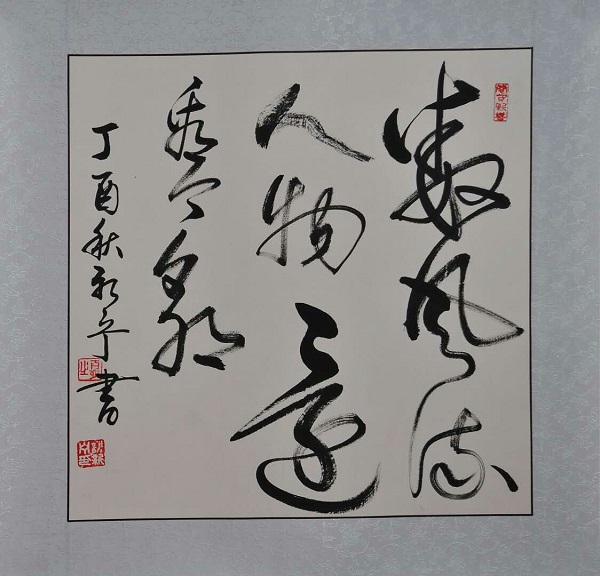 數風流
人物還
看今朝
丁酉秋書